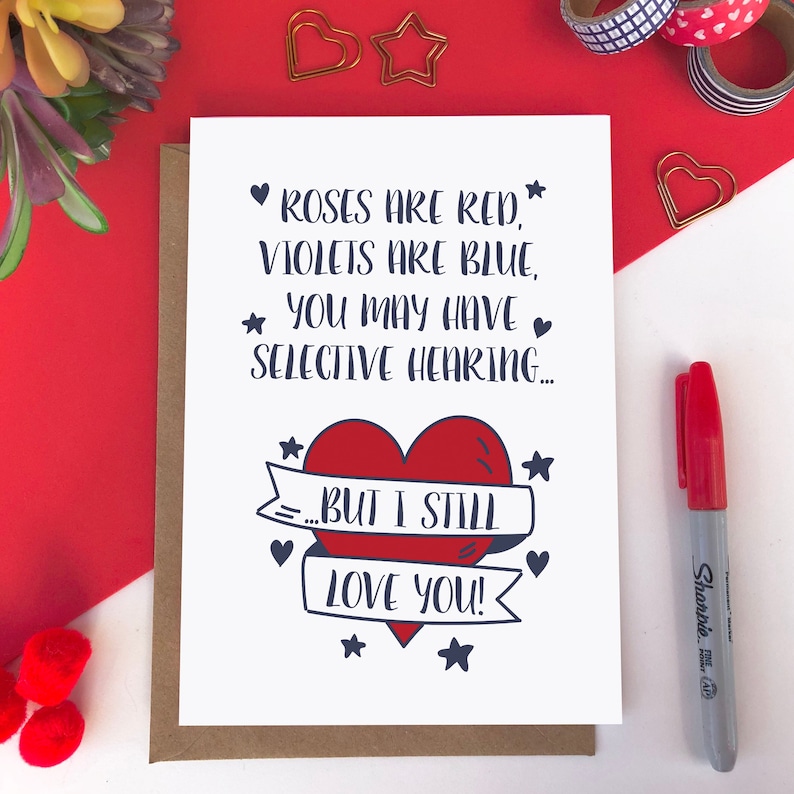 ROSES ARE RED,
VIOLETS ARE BLUE,
YOU MAY HAVE
SELECTIVE HEARING...
...BUT I STILL
LOVE YOU!
Sharpie.
FINE
POINT
Permanent Marker
AP